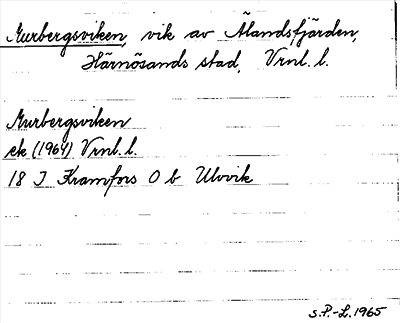 Murbergsviken, vik av Älandsfjärden,
Härnösands stad, Vrnl. l.
Murbergsviken
ek (1964) Vrnl. l.
18 I Kramfors O b Ulvvik
S.P.-L. 1965